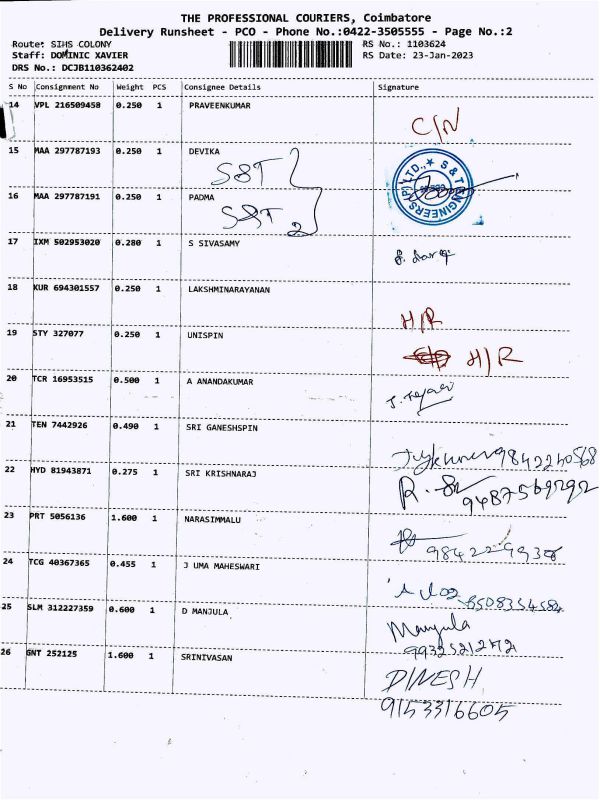 THE PROFESSIONAL COURIERS, Coimbatore
Delivery Runsheet - PCO - Phone No.:0422-3505555 - Page No.:2
Route: SIHS COLONY RS No.: 1103624
Staff: DOMINIC XAVIER RS Date: 23-Jan-2023
DRS No.: DCJB110362402
S No Consignment No Weight PCS Consignee Details Signature
14 VPL 216509458 0.250 1 PRAVEENKUMAR
C/N
15 MAA 297787193 0.250 1 DEVIKA
S&T
S & T ENGINEERS (P) LTD.,
16 MAA 297787191 0.250 1 PADMA
S&T 2
17 IXM 502953020 0.280 1 S SIVASAMY
18 KUR 694301557 0.250 1 LAKSHMINARAYANAN
H/R
19 STY 327077 0.250 1 UNISPIN
H/R
20 TCR 16953515 0.500 1 A ANANDAKUMAR
21 TEN 7442926 0.490 1 SRI GANESHSPIN
9842240568
22 HYD 81943871 0.275 1 SRI KRISHNARAJ
9487569292
23 PRT 5056136 1.600 1 NARASIMMALU
24 TCG 40367365 0.455 1 J UMA MAHESWARI
25 SLM 312227359 0.600 1 D MANJULA
Manjula
26 GNT 252125 1.600 1 SRINIVASAN
DINESH
9153316605